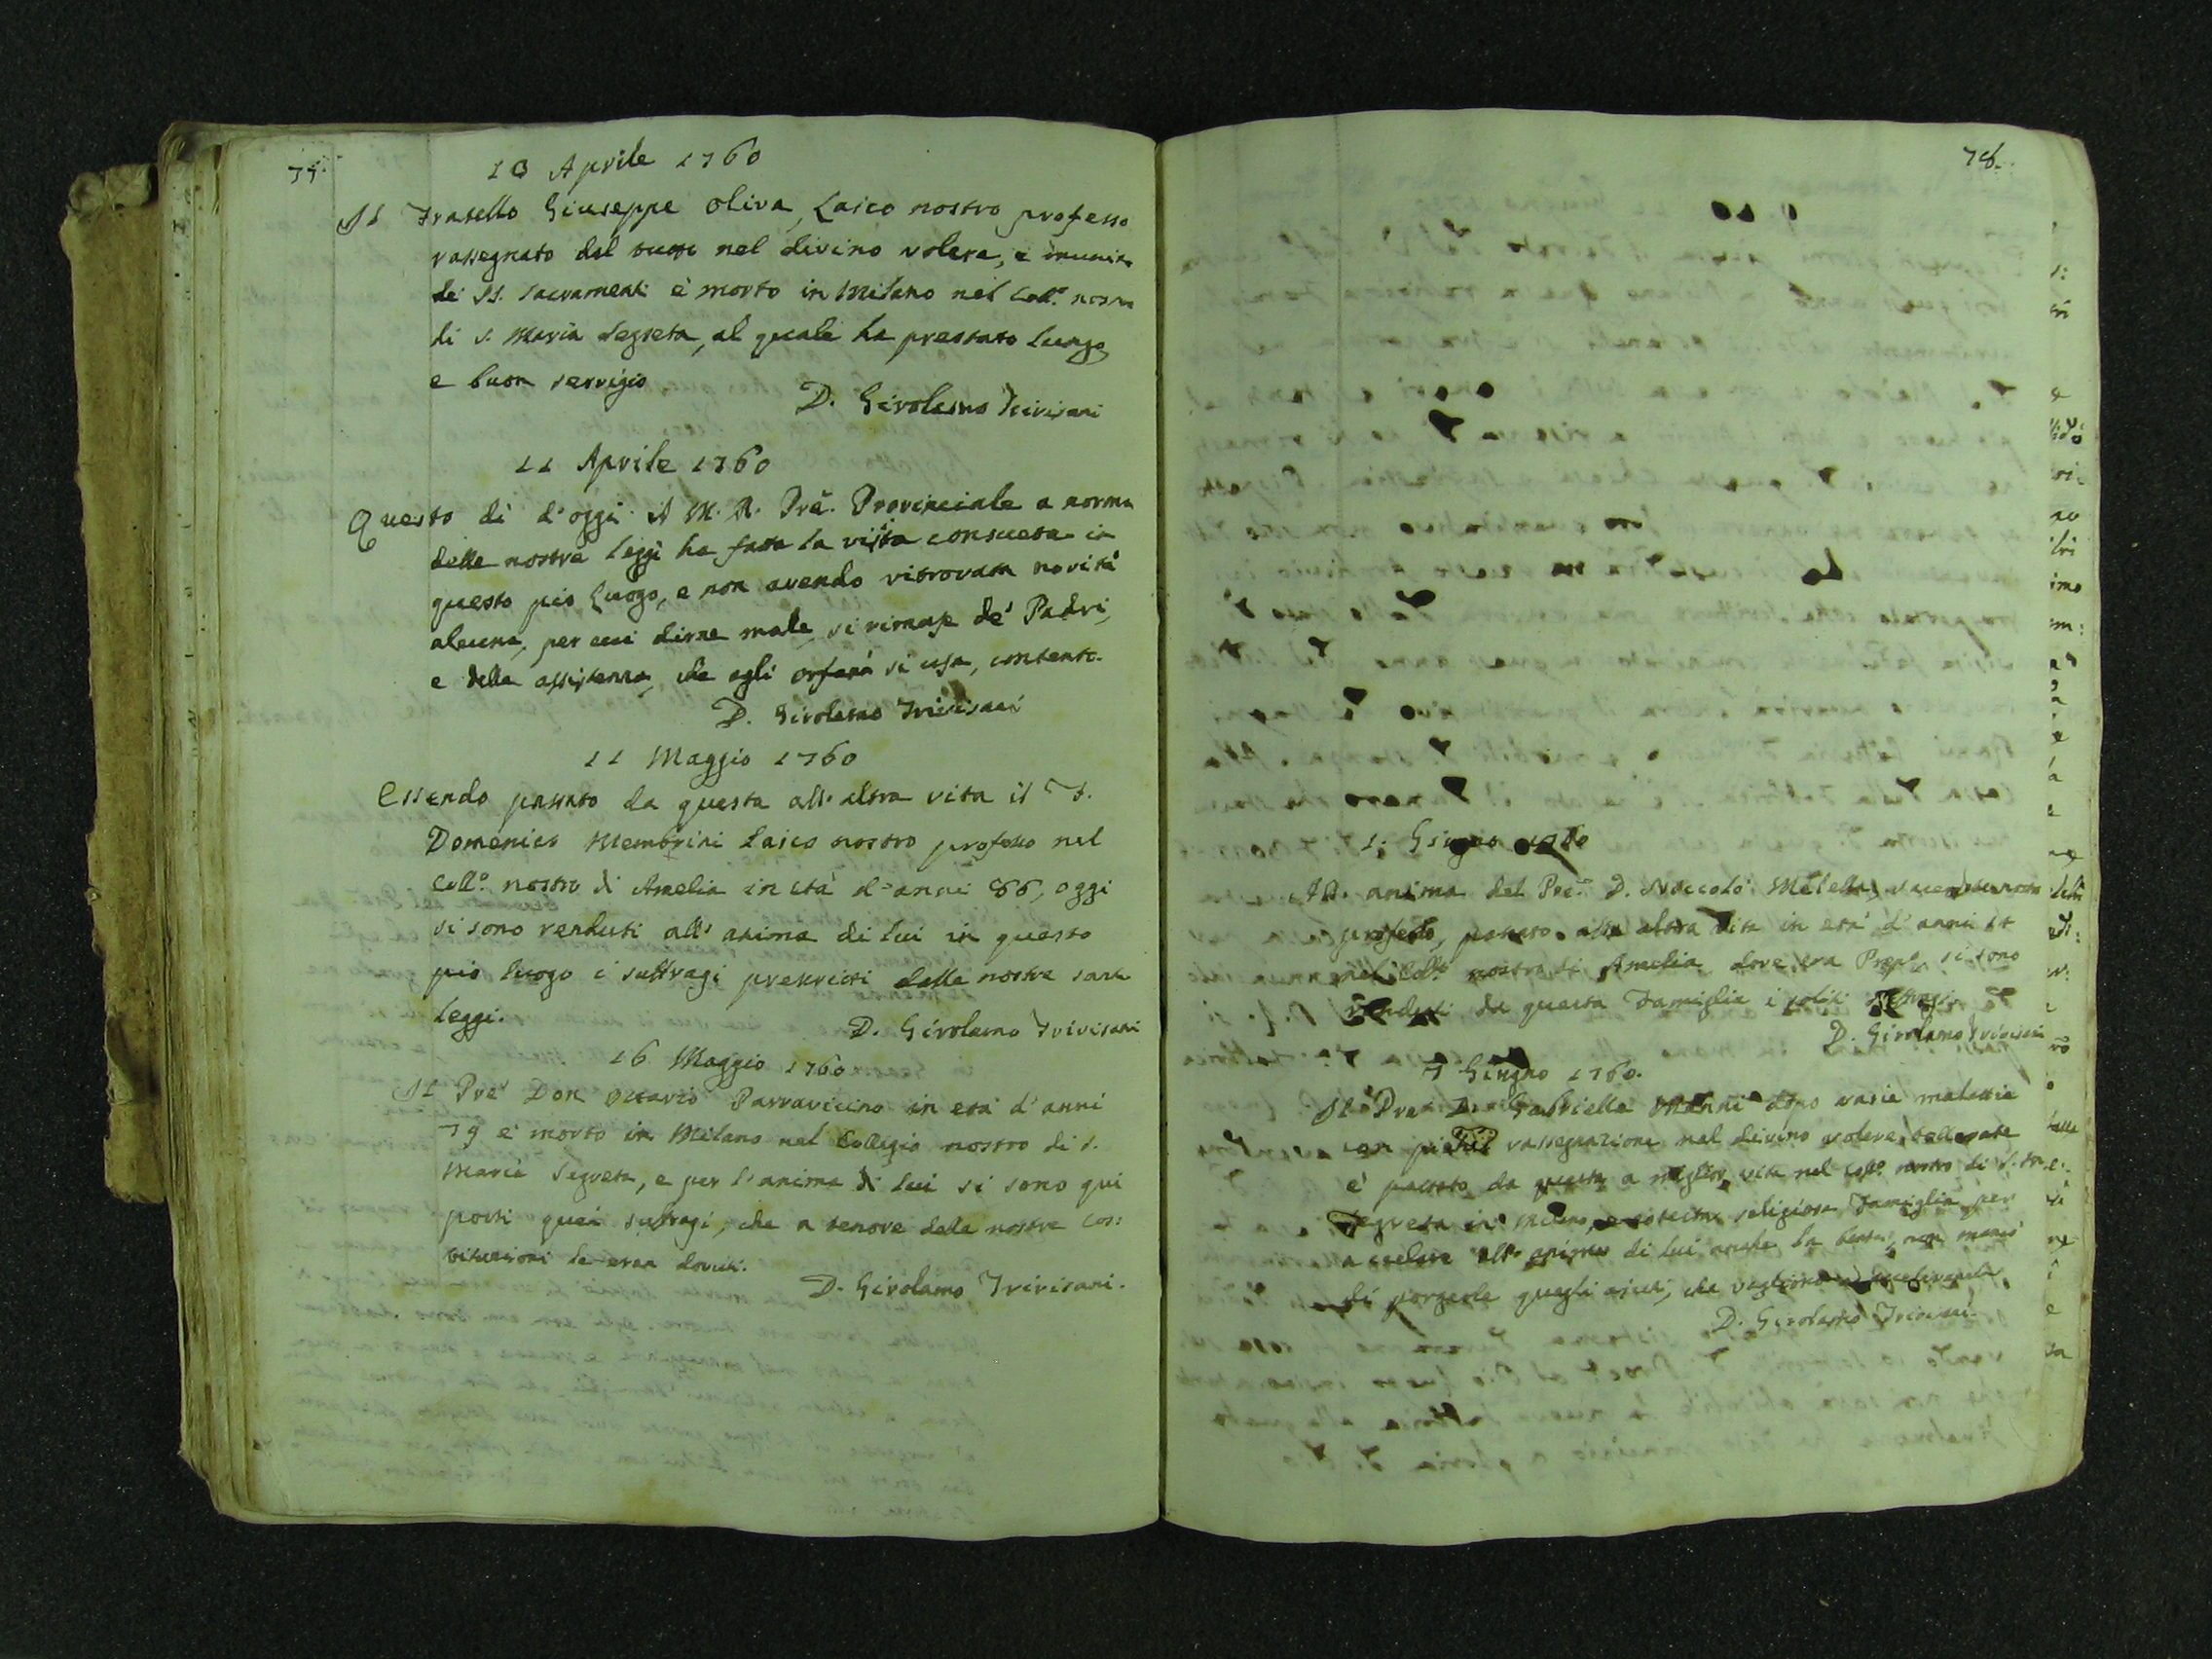 75.
10 Aprile 1760
Il Fratello Giuseppe Oliva, Laico nostro professo
rassegnato del tutto nel divino volere, e munito
de' SS. Sacramenti è morto in Milano nel Coll.º nostro
di S. Maria Segreta, al quale ha prestato lungo
e buon servigio
D. Girolamo Trivisani
11 Aprile 1760
Questo dì d'oggi il M. R. Pre. Provinciale a norma
delle nostre leggi ha fatta la visita consueta in
questo pio Luogo, e non avendo ritrovata novità
alcuna, per cui dirne male, si rimase de' Padri,
e della assistenza, che agli orfani si usa, contento.
D. Girolamo Trivisani
11 Maggio 1760
Essendo passato da questa all'altra vita il F.
Domenico Membrini Laico nostro professo nel
Coll.º nostro di Amelia in età d'anni 86, oggi
si sono renduti all'anima di lui in questo
pio luogo i suffragi prescritti dalle nostre sante
leggi.
D. Girolamo Trivisani
16 Maggio 1760
Il Pre Don Ottavio Parravicino in età d'anni
79 è morto in Milano nel Collegio nostro di S.
Maria Segreta, e per l'anima di lui si sono qui
porti quei suffragi, che a tenore delle nostre Cos:
tituzioni le eran dovuti.
D. Girolamo Trivisani.
76.
1. Giugno 1760
All'anima del Pre. D. Niccolò Metelli, sacerdote nostro
professo, passato alla altra vita in età d'anni
nel Coll.º nostro di Amelia dove era Prepº, si sono
renduti da questa Famiglia i soliti suffragi.
D. Girolamo Trivisani
7 Giugno 1760.
Il Pre D. Gabrielle Manni dopo varie malattie
con rassegnazione nel divino volere tollerate
è passato da questa a miglior vita nel Coll.º nostro di S. Ma
Segreta in Milano, e religiosa Famiglia per
all'anima di lui anche la non mancò
di porgerle quegli ajuti, che vagliono ad accelerarla.
D. Girolamo Trivisani